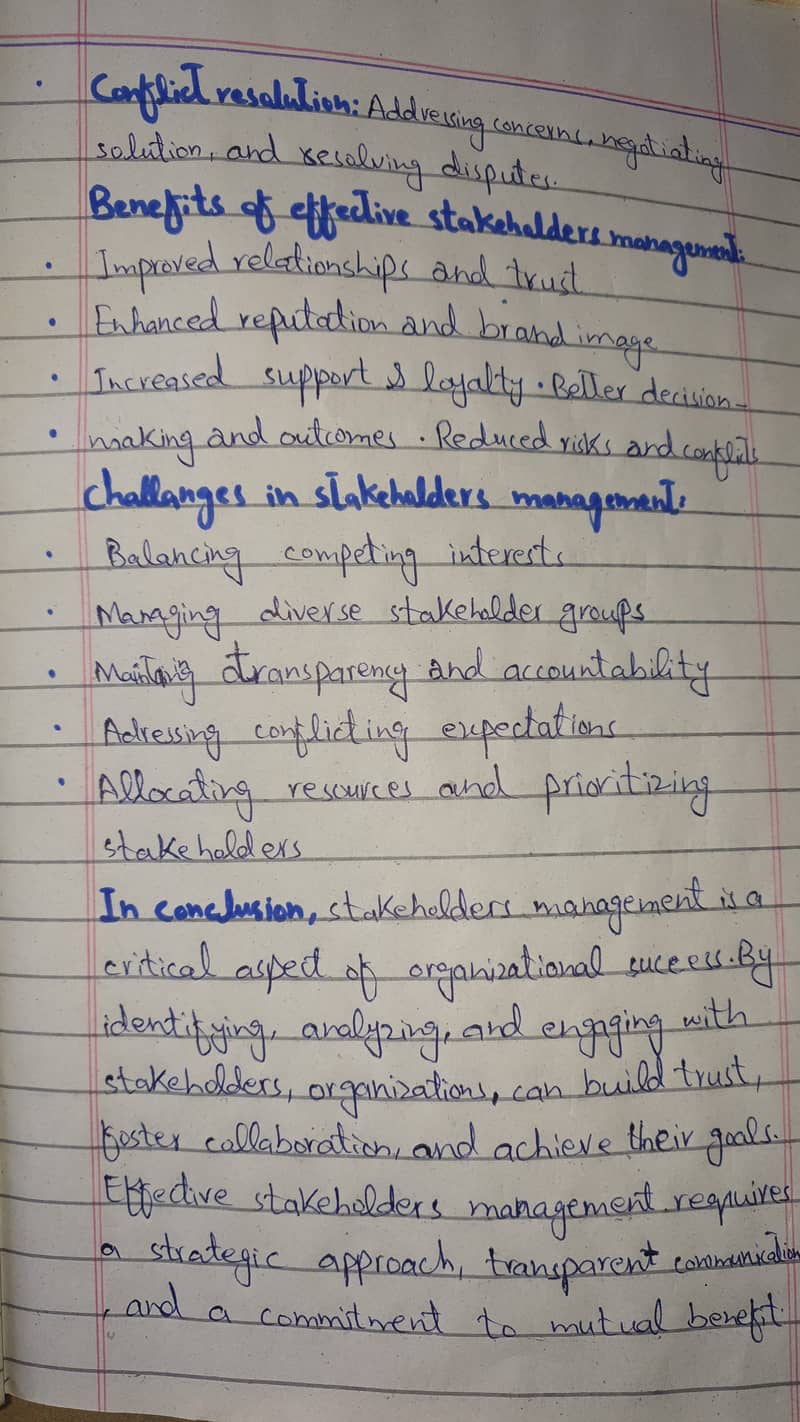 • Conflict resalution: Addressing concerns, negotiating
solution, and resolving disputes.
Benefits of effective stakehalders management:
• Improved relationships and trust
• Enhanced reputation and brand image
• Increased support & loyalty • Better decision-
• making and outcomes • Reduced risks and conflicts
Challanges in stakehalders management:
• Balancing competing interests
• Managing diverse stakeholder groups
• transparency and accountability
• Adressing conflicting expectations
• Allocating resources and prioritizing
stakeholders
In conclusion, stakeholders management is a
critical aspect of organizational success. By
identifying, analyzing, and engaging with
stakeholders, organizations, can build trust,
foster collaboration, and achieve their goals.
Effective stakeholders management requires
a strategic approach, transparent communication
, and a commitment to mutual benefit.